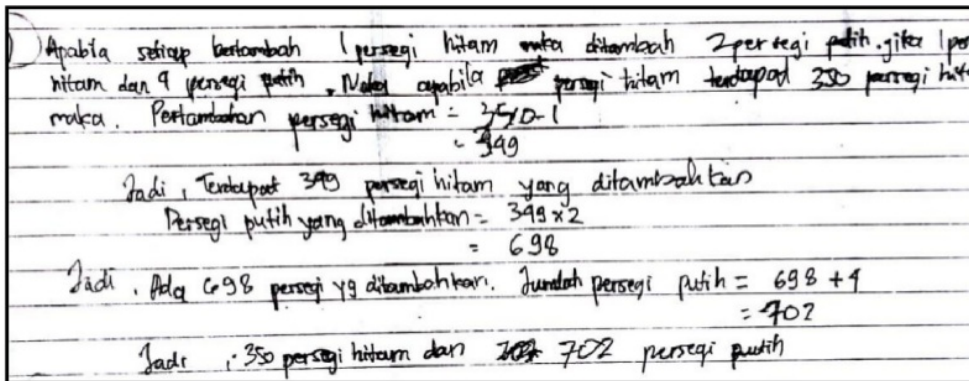 Apabila setiap bertambah 1 persegi hitam maka ditambah 2 persegi putih. jika 1 per
hitam dan 4 persegi putih. Maka apabila persegi hitam terdapat 350 persegi hit
maka. Pertambahan persegi hitam = 350-1
= 349
Jadi, Terdapat 349 persegi hitam yang ditambahkan
Persegi putih yang ditambahkan = 349 x 2
= 698
Jadi, Ada 698 persegi yg ditambahkan. Jumlah persegi putih = 698 + 4
= 702
Jadi, 350 persegi hitam dan 702 persegi putih